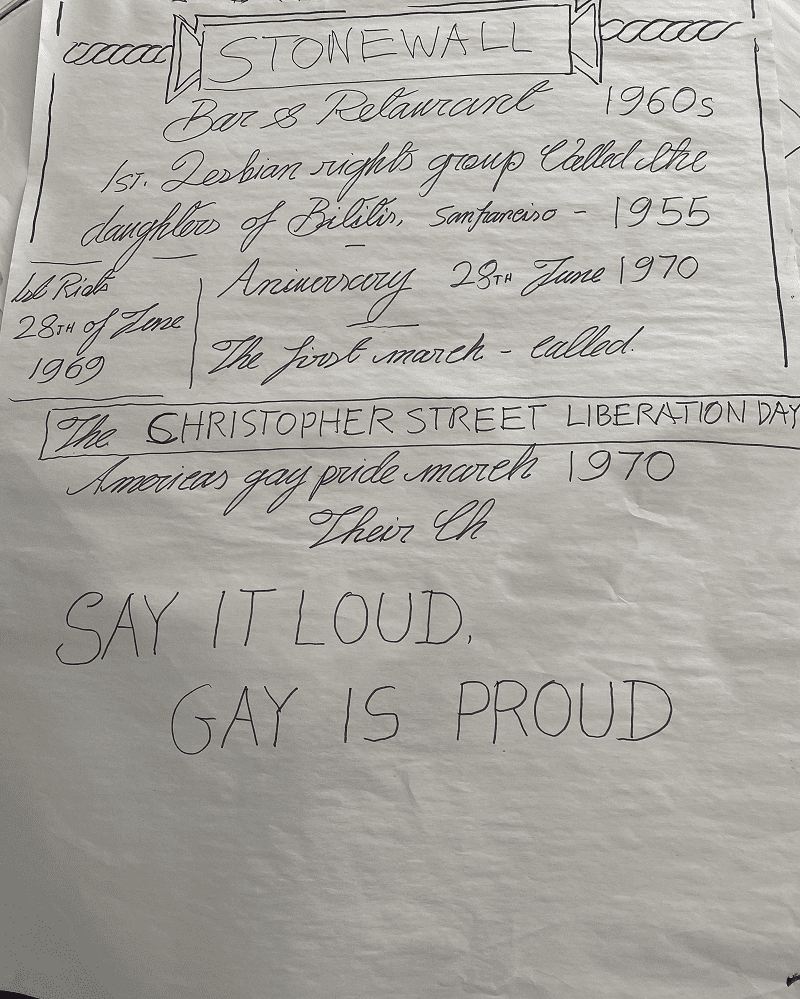 STONEWALL
Bar & Retaurant 1960s
1st. Lesbian rights group Called the
daughters of Bilitis, Sanfranciso - 1955
1st Riots
28TH of June
1969
Aniversary 28TH June 1970
The first march - called.
The CHRISTOPHER STREET LIBERATION DAY
Americas gay pride march 1970
Their Ch
SAY IT LOUD,
GAY IS PROUD